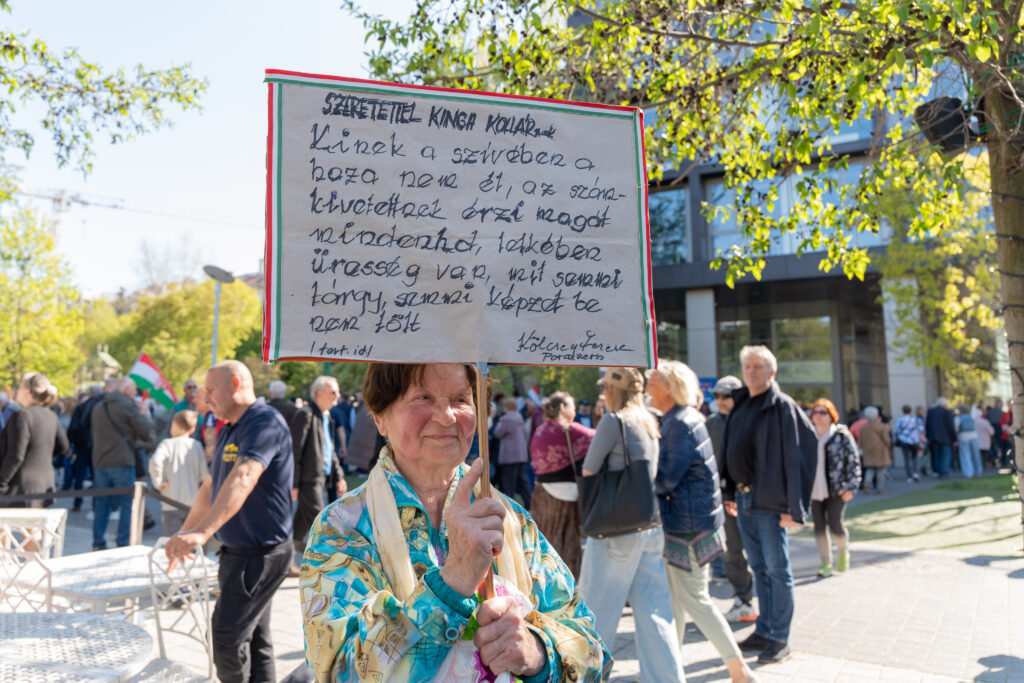 SZERETETTEL KINGA KOLLÁRnak
Kinek a szivében a
haza nem él, az szám-
kivetettnek érzi magát
mindenhol, lelkében
üresség van, mit semmi
tárgy, semmi képzet be
nem tölt
/tart.id/
Kölcsey Ferenc